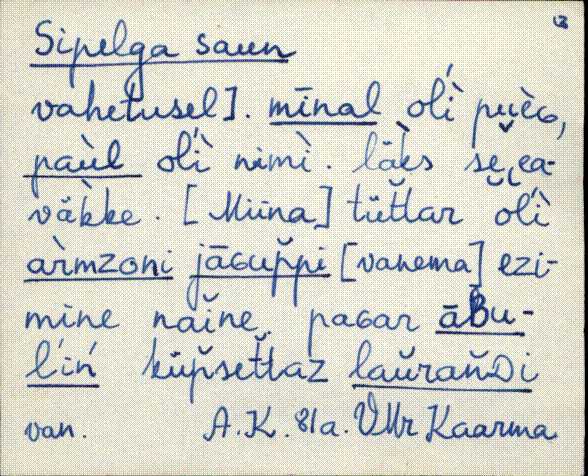 13
Sipelga saun
vahetusel]. mīnal olì puèɢ,
paùl olì nimì. läks sĕ̬ɢa-
väkke. [Miina] tüt̆tar ŏlì
àrmzoni jāɢup̆pi [vanema] ezi-
mine naĭne. paɢar āBu-
ĺiń küp̆set̆taz laŭrañDi
van. A.K. 81a. VMr Kaarma